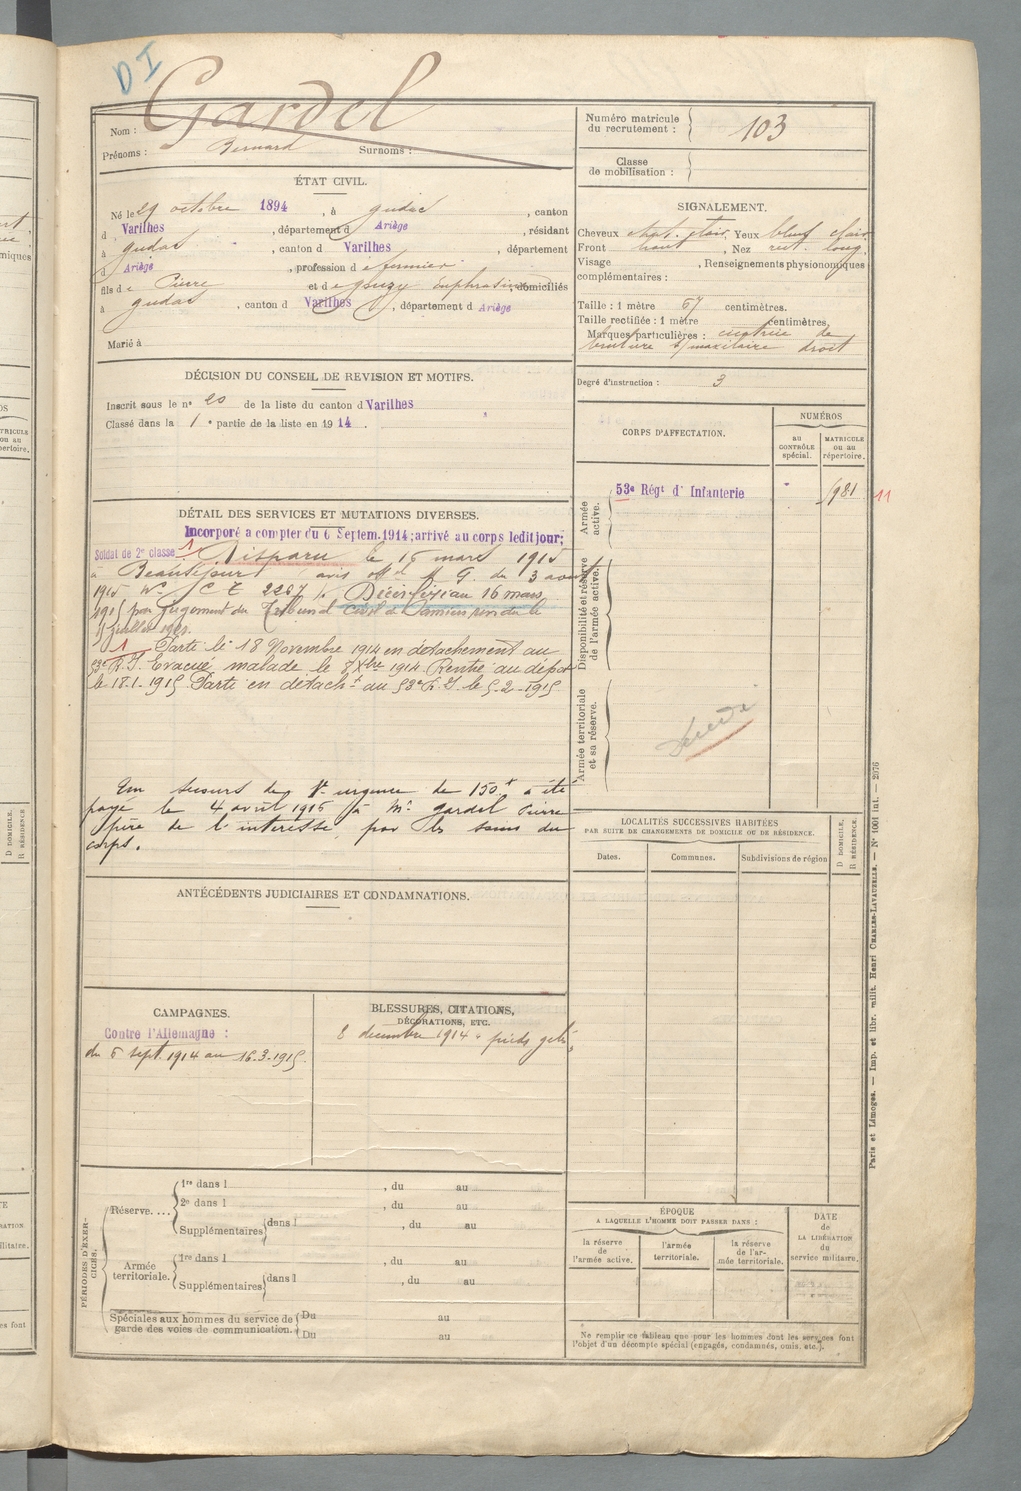 DI
Gardel
Nom :
Prénoms : Bernard Surnoms :
Numéro matricule
du recrutement : 103
Classe
de mobilisation :
ÉTAT CIVIL.
Né le 29 octobre 1894, à Gudas, canton
d Varilhes, département d Ariège, résidant
à Gudas, canton d Varilhes, département
d Ariège, profession de fermier
fils de Pierre et de Gouzy Euphrasie domiciliés
à Gudas, canton d Varilhes, département d Ariège
Marié à
SIGNALEMENT.
Cheveux chat. clair, Yeux bleus clair
Front haut, Nez rect. long.
Visage , Renseignements physionomiques
complémentaires :
Taille : 1 mètre 67 centimètres.
Taille rectifiée : 1 mètre centimètres.
Marques particulières : cicatrice de
maxilaire droit
Degré d'instruction : 3
DÉCISION DU CONSEIL DE REVISION ET MOTIFS.
Inscrit sous le n° 20 de la liste du canton d Varilhes
Classé dans la 1e partie de la liste en 1914.
CORPS D'AFFECTATION.
NUMÉROS
au
CONTRÔLE
spécial.
MATRICULE
ou au
répertoire.
Armée
active.
53e Régt d' Infanterie
5981
11
Disponibilité et réserve
de l'armée active.
Armée territoriale
et sa réserve.
DÉTAIL DES SERVICES ET MUTATIONS DIVERSES.
Incorporé à compter du 6 Septem. 1914; arrivé au corps ledit jour;
Soldat de 2e classe 1 Disparu le 16 mars 1915
à Beauséjour avis off M. G. du 3 août
1915 No C E 2267 Décès fixé au 16 mars
1915 par jugement du Tribunal civil de Pamiers rendu le
juillet
1 Parti le 18 Novembre 1914 en détachement au
53e R.I. Evacué malade le 8 Xbre 1914 Rentré au dépôt
le 17.1.1915 Parti en détacht au 53e R.I. le 5-2-1915
Un secours de 1re urgence de 150f a été
payé le 4 avril 1916 à Mr Gardel Pierre
père de l'intéressé par les soins du
corps.
LOCALITÉS SUCCESSIVES HABITÉES
PAR SUITE DE CHANGEMENTS DE DOMICILE OU DE RÉSIDENCE.
D DOMICILE.
R RÉSIDENCE.
Dates.
Communes.
Subdivisions de région
ANTÉCÉDENTS JUDICIAIRES ET CONDAMNATIONS.
CAMPAGNES.
Contre l'Allemagne :
du 6 sept. 1914 au 16-3-1915.
BLESSURES, CITATIONS,
DÉCORATIONS, ETC.
8 décembre 1914 pieds gelés
PÉRIODES D'EXERCICES.
Réserve....
1re dans l , du au
2e dans l , du au
Supplémentaires dans l , du au
Armée
territoriale.
1re dans l , du au
Supplémentaires dans l , du au
Spéciales aux hommes du service de
garde des voies de communication.
Du au
Du au
ÉPOQUE
A LAQUELLE L'HOMME DOIT PASSER DANS :
la réserve
de
l'armée active.
l'armée
territoriale.
la réserve
de l'ar-
mée territoriale.
DATE
de
LA LIBÉRATION
du
service militaire.
Ne remplir ce tableau que pour les hommes dont les services font
l'objet d'un décompte spécial (engagés, condamnés, omis, etc.).
Paris et Limoges. — Imp. et libr. milit. Henri CHARLES-LAVAUZELLE. — N° 1001 int. — 2976